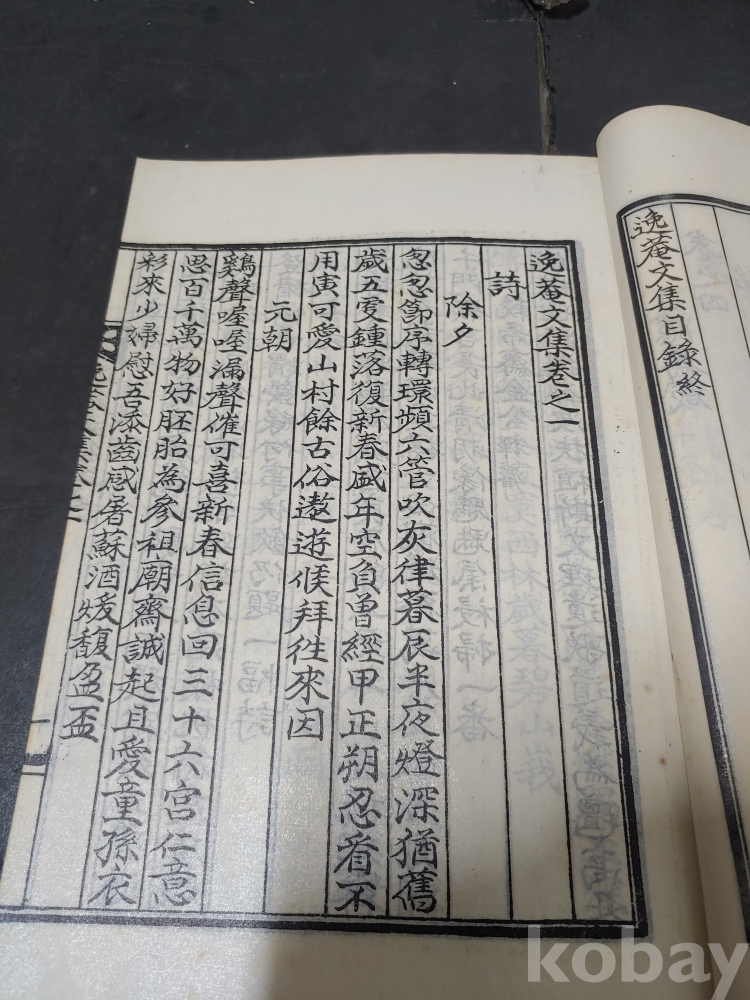 逸菴文集目錄終
逸菴文集卷之一
詩
除夕
忽忽節序轉環頻六管吹灰律暮辰半夜燈深猶舊
歲五更鍾落復新春盛年空負曾經甲正朔忍看不
用寅可愛山村餘古俗遨遊候拜往來因
元朝
鷄聲喔喔漏聲催可喜新春信息回三十六宮仁意
思百千萬物好胚胎為參祖廟齋誠起且愛童孫衣
彩來少婦慰吾添齒感屠蘇酒煖馥盈盃
逸菴文集卷之一
一
kobay